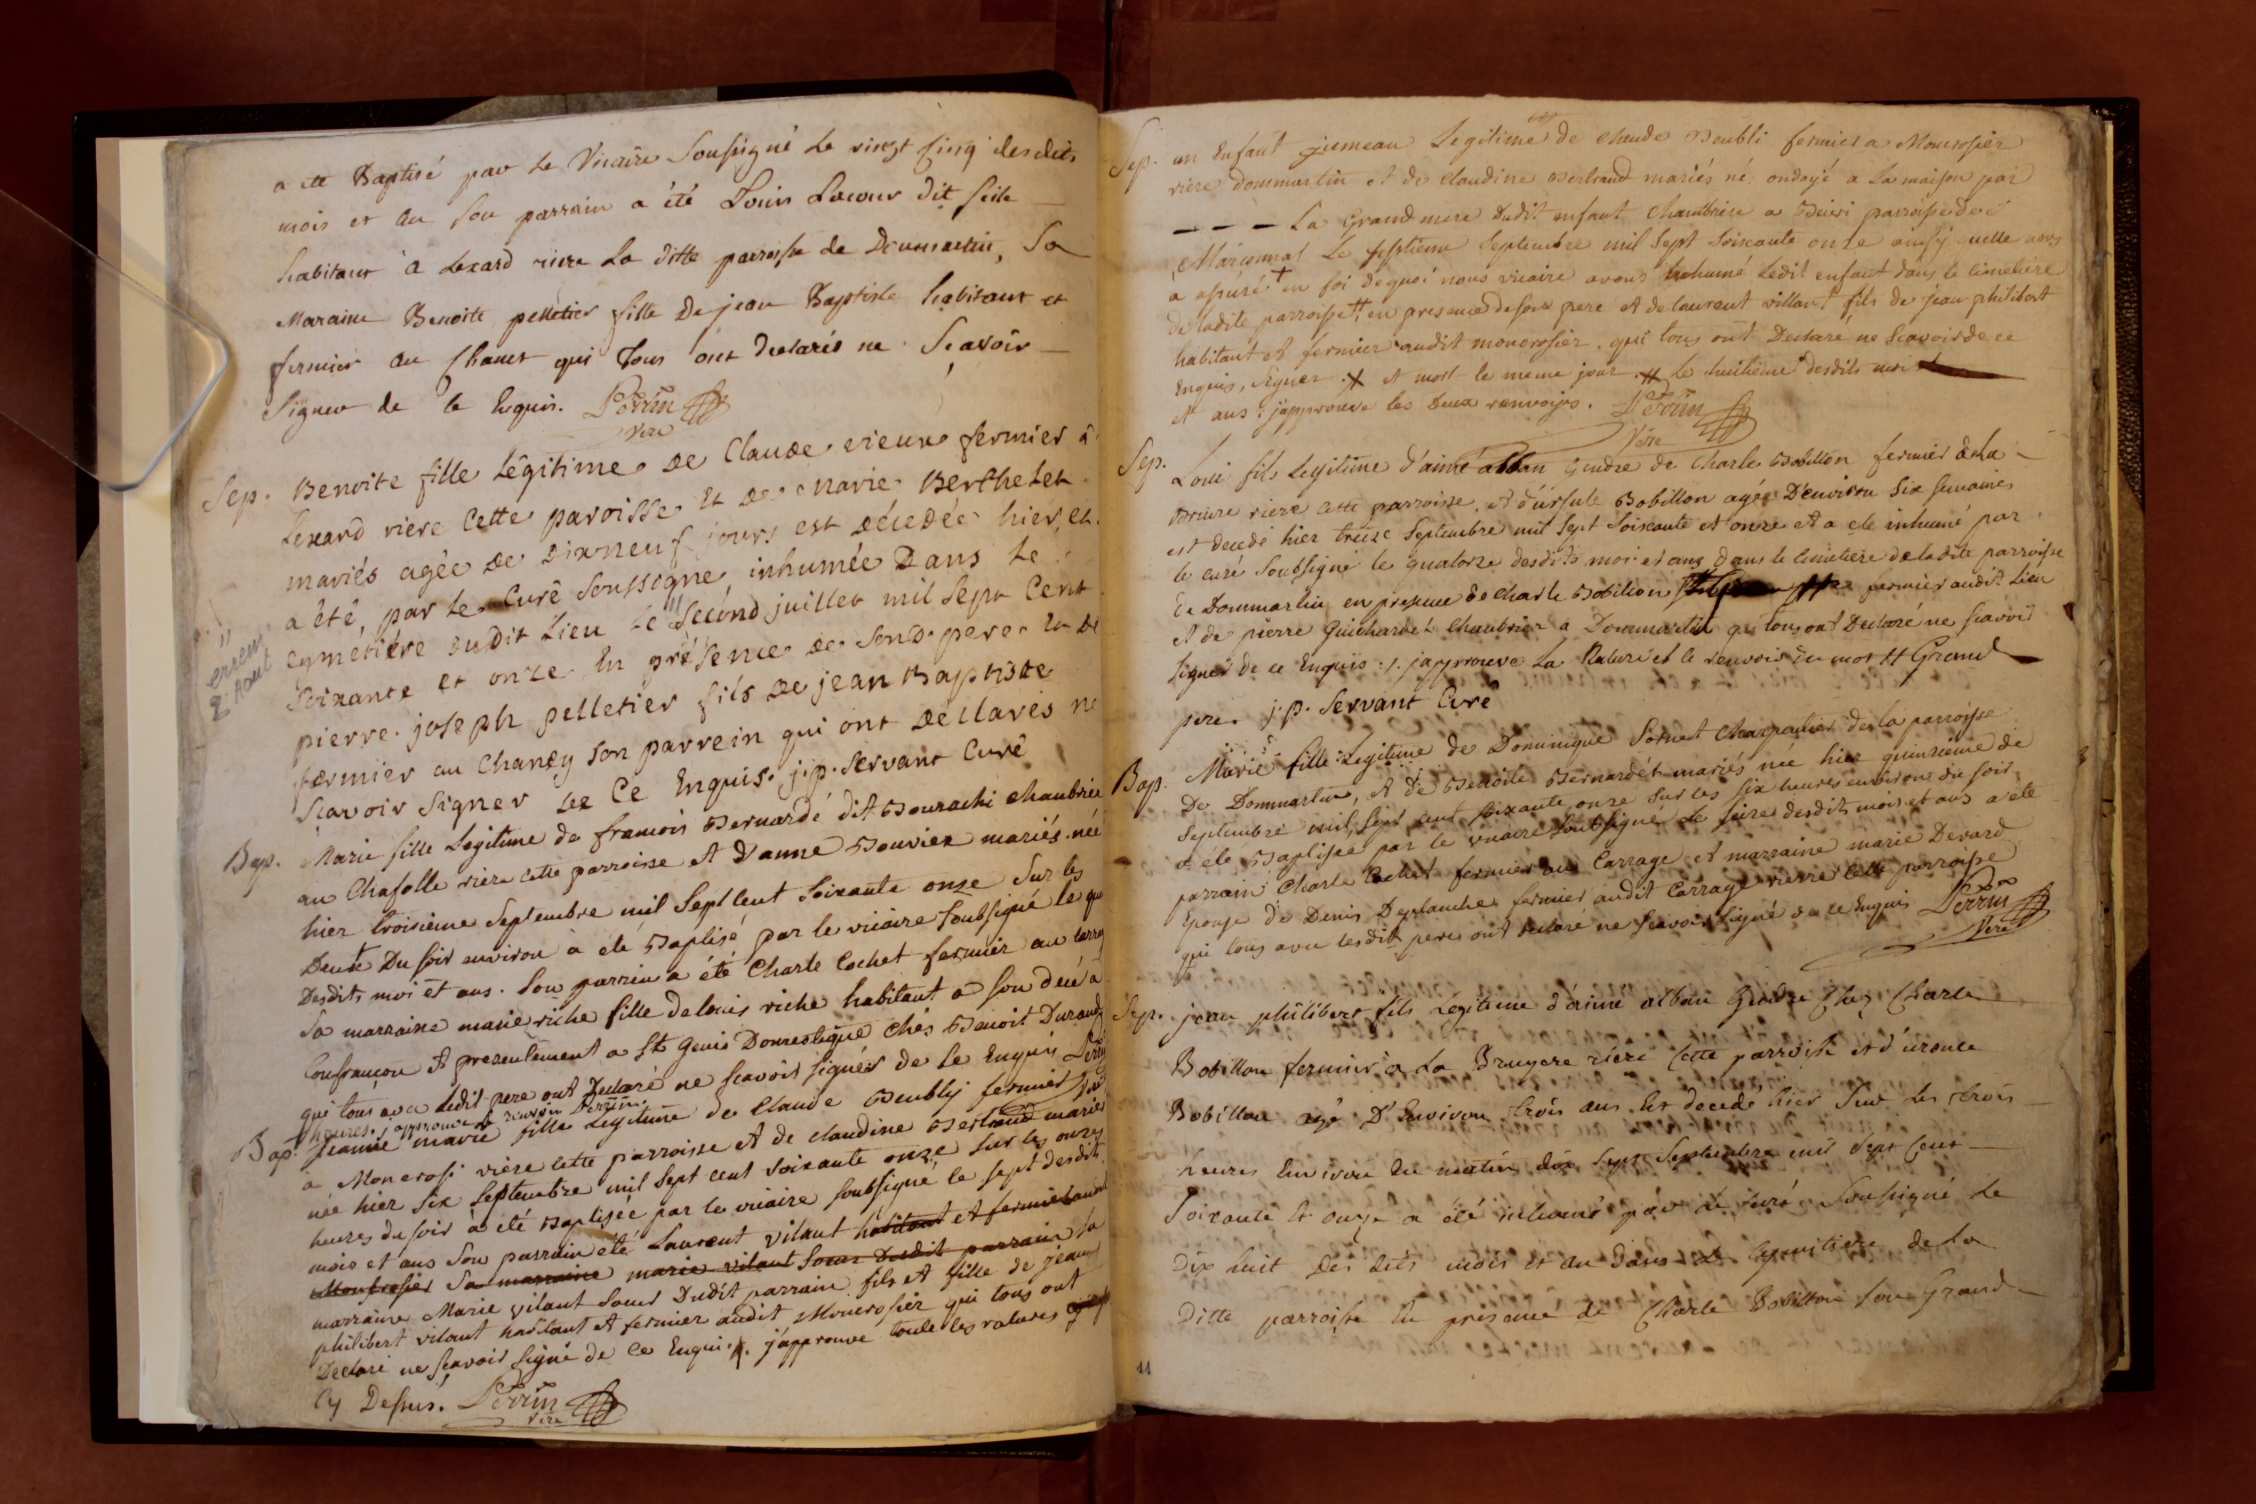 a ete Baptisé par le Vicaire Soussigné le vingt Cinq desdits
mois et an son parrain a été Louis Lacour dit
habitant a Lexard riere la ditte parroisse de Dommartin, Sa
Maraine Benoite pelletier fille De jean Baptiste habitant et
fermier au Chanet qui Tous ont declarés ne Scavoir
Signer de ce Enquis. Perrin
Vire
Sep. Benoite fille Légitime de Claude vieux fermier à
Lexard riere Cette paroisse Et De Marie Berthelet
mariés agée de Dixneuf jours est décedée hier, et
a été, par le Curé Soussigné, inhumée Dans Le
cymetiére dudit Lieu le " Second juillet mil Sept Cent
" erreur
2 Aout
Soixante et onze En présence de Sond. pere Et De
pierre joseph pelletier fils De jean Baptiste
fermier au Chaney son parrein qui ont déclarés ne
Scavoir Signer De Ce Enquis. j:p. Servant Curé
Bap. Marie fille Legitime de francois Bernardé dit Bourachi chambrier
au Chafolle riere cette parroisse Et D'anne Bouvier mariés née
hier troisieme Septembre mil Sept Cent Soixante onze Sur les
Deux Du soir environ à été Baptisé par le vicaire soubsigné le
Desdits moi et ans. Son parrin a été Charle Cochet fermier au
Sa marraine marie riche fille De louis riche habitant a
Confrançon Et presentement a St Genis Domestique chés Benoit Durand
qui tous avec ledit pere ont Declaré ne scavoir signer de ce Enquis
heures. approuve le renvoir Perrin
Bap. Jeanne marie fille Legitime de Claude Beubly fermier
a Moncrosi riere cette parroisse Et de claudine Bertrand mariés
née hier Six Septembre mil Sept cent Soixante onze Sur les onze
heures du soir à été Baptisée par le vicaire soubsigné le sept desdits
mois et ans Son parrain été Laurent vilant habitant et fermier
Moncrosier Sa marraine marie vilant Soeur Dudit parrain Sa
marraine Marie vilant Soeur Dudit parrain fils Et fille de jean
philibert vilant habitant Et fermier audit Moncrosier qui tous ont
Declaré ne scavoir signé de ce Enqui. j'approuve toute les ratures
Cy Dessus. Perrin
Vire
Sep. un Enfant jumeau Legitime de claude Beubli fermier a Moncrosier
riere dommartin et de claudine Bertrand mariés né ondoyé a la maison par
La Grand mere dudit enfant Chambriere a parroisse de
Marsonnas Le septieme Septembre mil Sept Soixante onze ainsÿ quelle nous
a assuré + en foi dequoi nous vicaire avons inhumé ledit enfant dans le cimetiere
de ladite parroisse # en presence de son pere et de laurent villant fils de jean philibert
habitant et fermier audit moncrosier. qui tous ont Declaré ne Scavoir de ce
Enquis, Signer + et mort le meme jour. # le huitieme desdits moi
et ans. j'approuve les Deux renvoiyes. Perrin
Vire
Sep. Loui fils Legitime d'aimé alban Gendre de Charle Bobillon fermier de La
Bruire riere cette parroisse. et d'ursule Bobillon agée D'environ Six semaines
est decedé hier treize Septembre mil Sept Soixante et onze et a ete inhumé par
le curé Soubsigné le quatorze desdits moi et ans Dans le cimetiere de ladite parroisse
De Dommartin en presence de charle Bobillon # fermier audit Lieu
et de pierre Guichardet Chambrier a Dommartin qui tous ont Declaré ne scavoir
Signer de ce Enquis :/. japprouve La Rature et le renvoir du mot # Grand
pere. j:p. Servant Curé
Bap. Marie fille Legitime de Dominique Sornet Charpatier de la parroisse
De Dommartin, et de Benoite Bernardet mariés née hier quinzieme de
Septembre mil Sept cent soixante onze Sur les Six heures environs du soir
a été Baptisée par le vicaire soubsigné le seize desdits mois et ans a eté
parrain Charle Cochet fermier au Carrage et marraine marie Devard
Epouse de Denis Deplanche fermier audit Carrage rierre cette parroisse
qui tous avec lesdit peres ont declaré ne scavoir signé de ce Enquis Perrin
Vire
Sep. jean philibert fils Legitime d'aimé alban Gendre Chez Charle
Bobillon fermier à La Bruyere riere Cette parroisse et d'ursule
Bobillon agé D'Environ trois ans Est decedé hier Sur les trois
heures Environ du matin dix Sept Septembre mil Sept Cent
Soixante et onze a été inhumé par le curé Soussigné le
Dix huit des dits mois et an dans le Cymitiere de la
Ditte parroisse En presence de Charle Bobillon son Grand
11